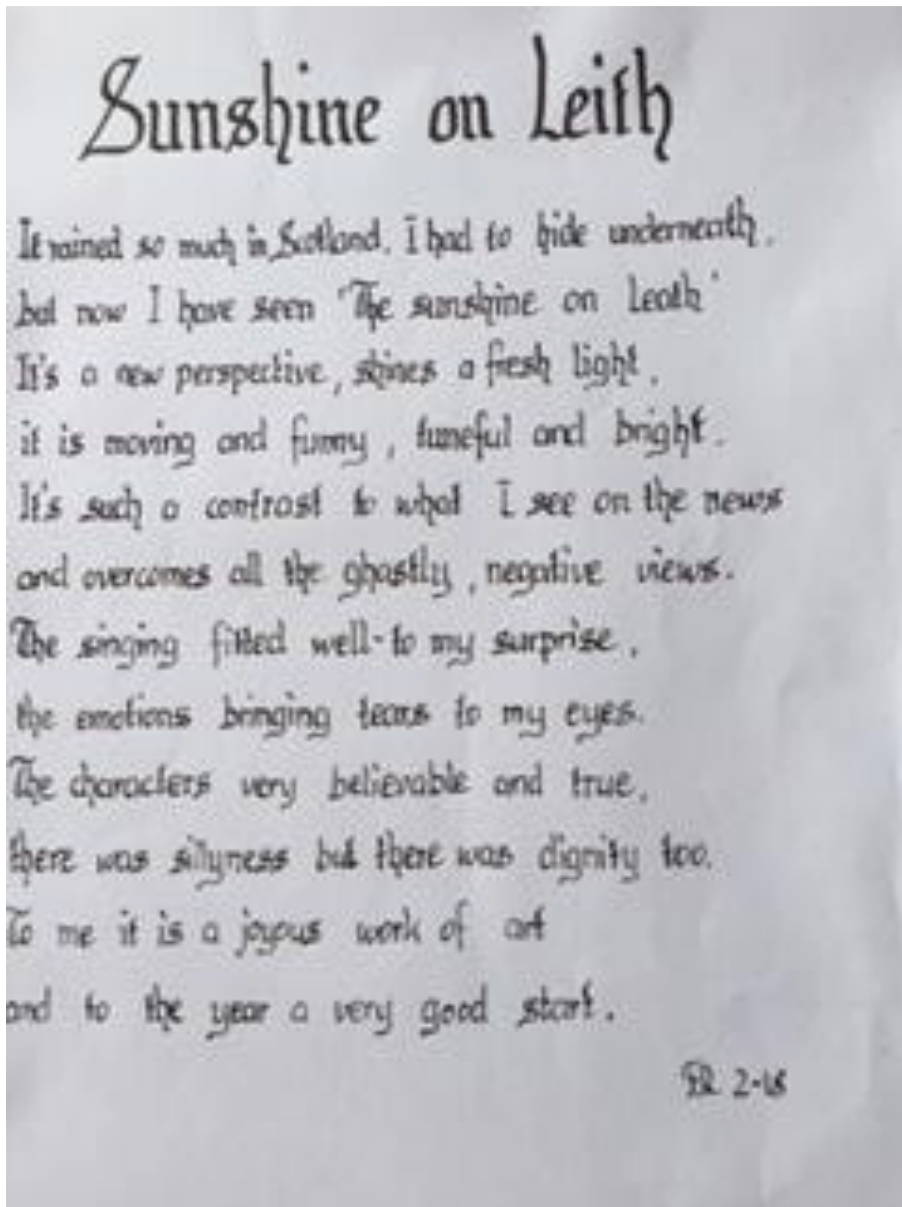 Sunshine on Leith
It rained so much in Scotland. I had to hide underneath,
but now I have seen 'The sunshine on Leath'
It's a new perspective, shines a fresh light,
it is moving and funny, tuneful and bright.
It's such a contrast to what I see on the news
and overcomes all the ghastly, negative views.
The singing fitted well-to my surprise,
the emotions bringing tears to my eyes.
The characters very believable and true,
there was sillyness but there was dignity too.
To me it is a joyous work of art
and to the year a very good start.
2-18